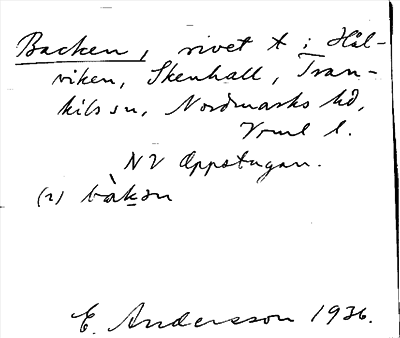 Backen, rivet t i Häl-
viken, Skenhall, Tran-
kils sn, Nordmarks hd,
Vrml l.
NV Oppstugan.
(2) bàkən
E. Andersson 1936.